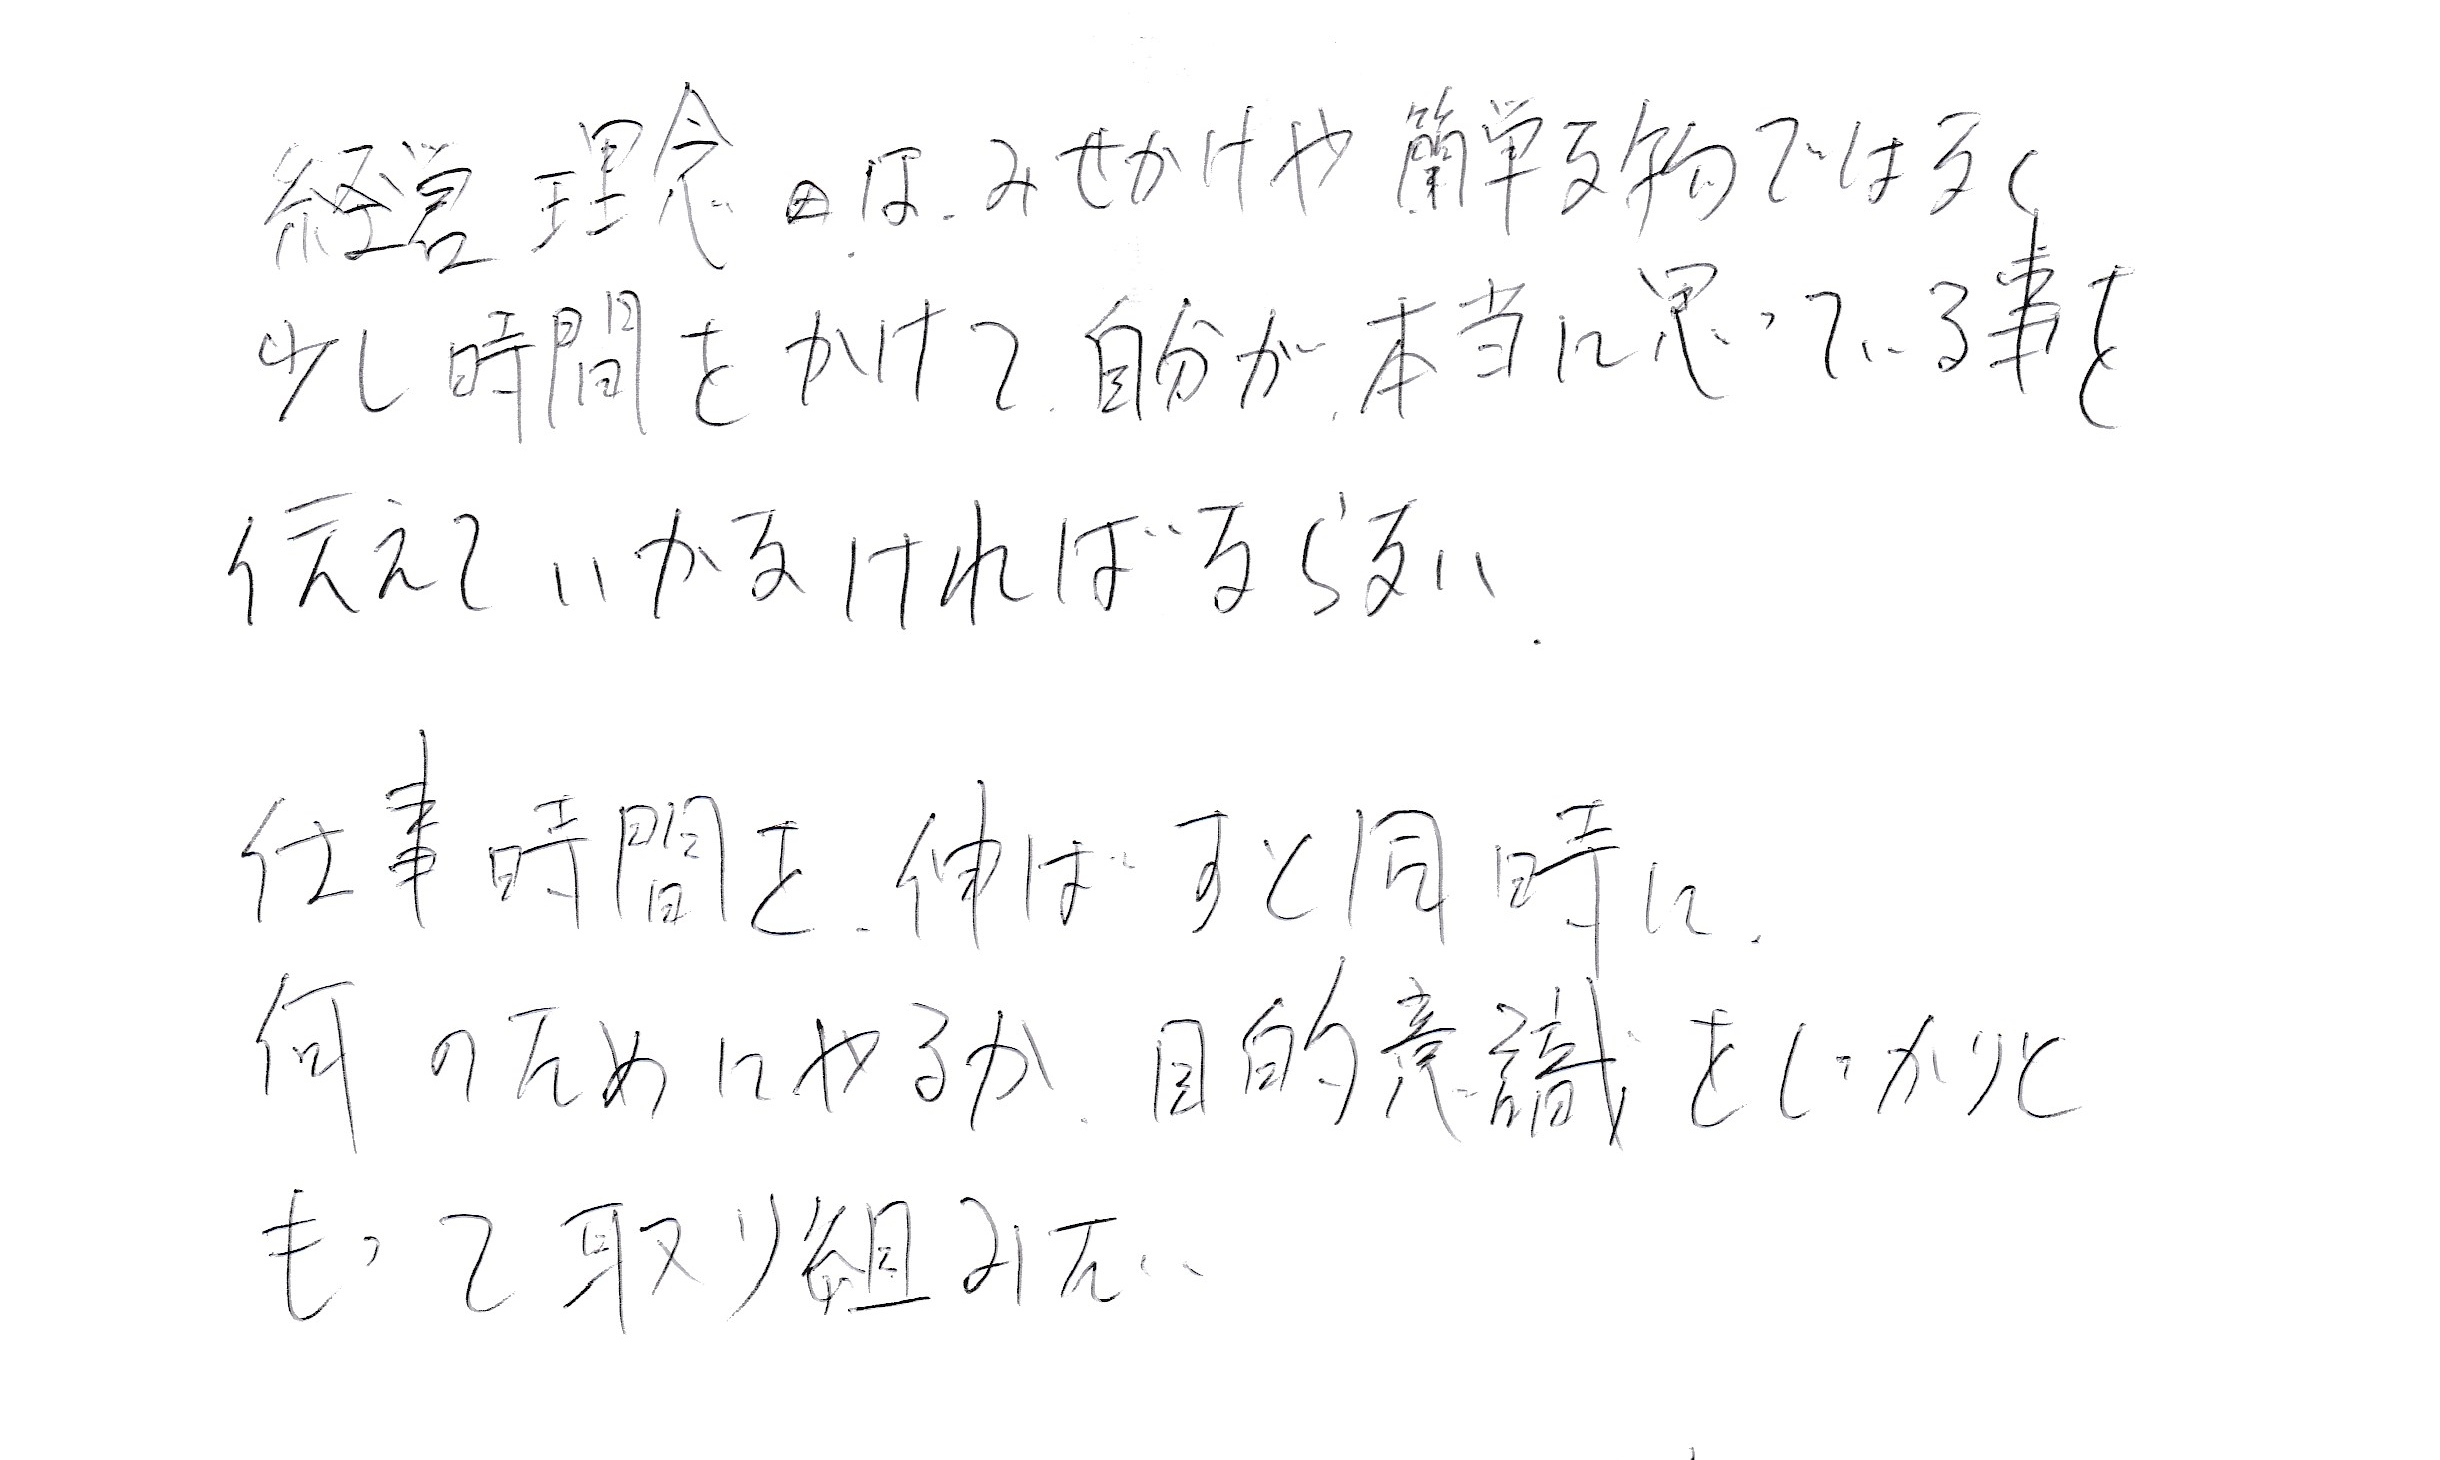 経営理念は、みせかけや簡単な物ではなく
少し時間をかけて、自分が、本当に思っている事を
伝えていかなければならない.
仕事時間を、伸ばすと同時に、
何のためにやるか、目的意識をしっかりと
もって取り組みたい